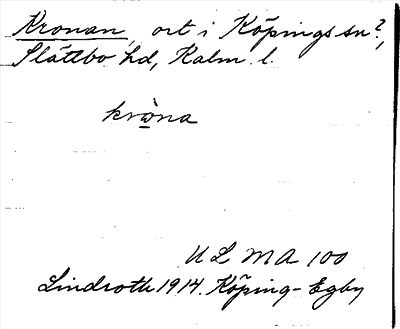 Kronan, ort i Köpings sn?,
Slättbo hd, Kalm. l.
kròna
ULMA 100
Lindroth 1914. Köping-Egby